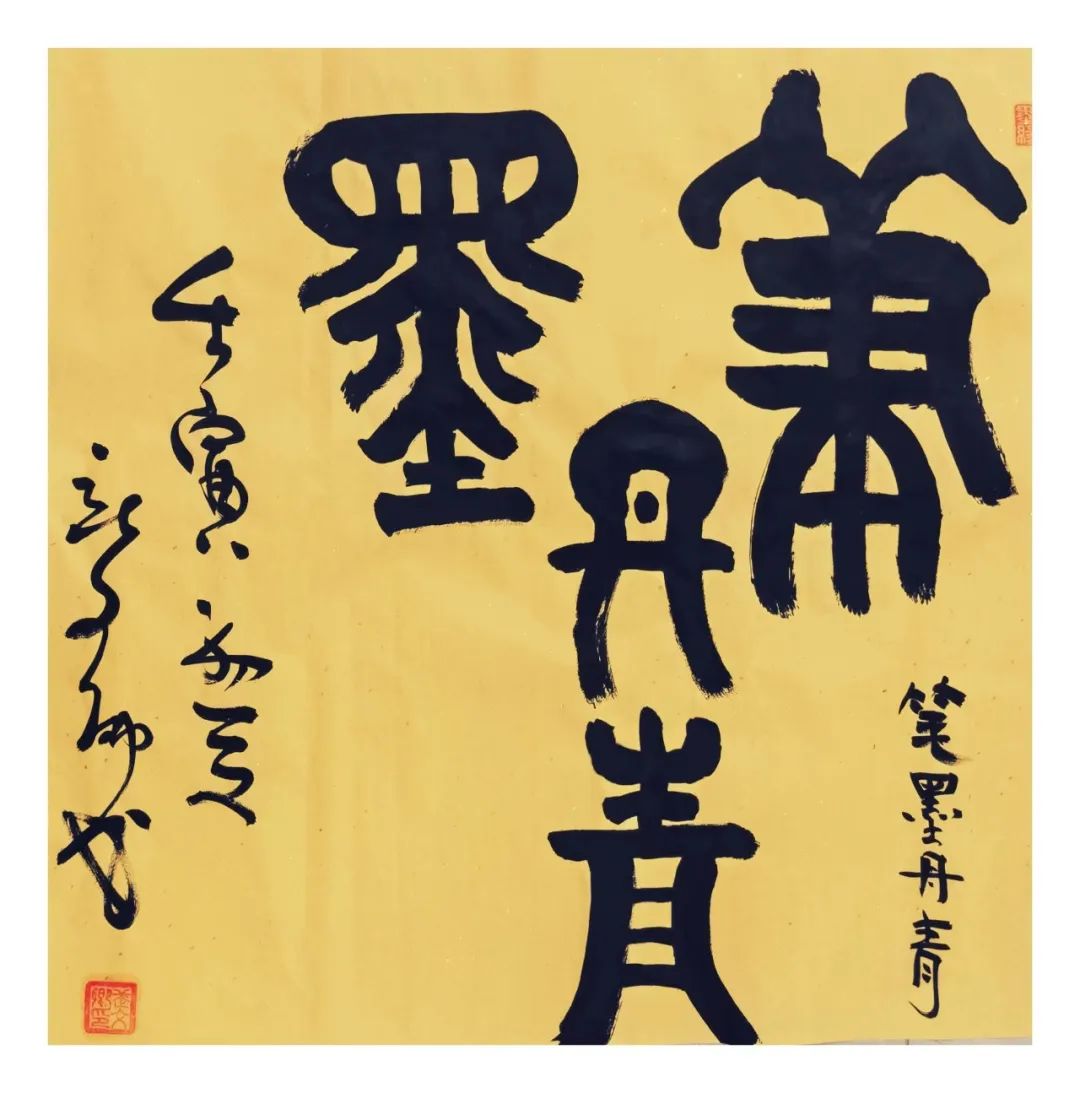 筆墨丹青
笔墨丹青
壬寅初夏